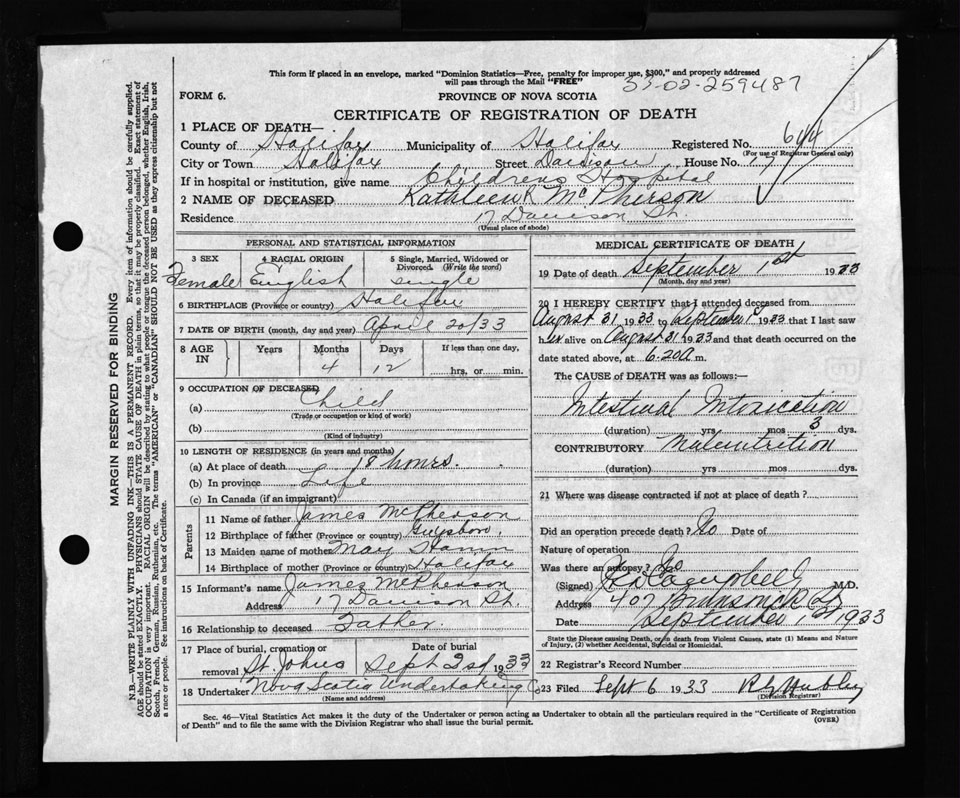 This form if placed in an envelope, marked "Dominion Statistics—Free, penalty for improper use, $300," and properly addressed
will pass through the Mail "FREE"
33-02-259487
FORM 6.
PROVINCE OF NOVA SCOTIA
CERTIFICATE OF REGISTRATION OF DEATH
1 PLACE OF DEATH—
County of Halifax Municipality of Halifax Registered No. 644
(For use of Registrar General only)
City or Town Halifax Street Davison House No. 17
If in hospital or institution, give name Childrens Hospital
2 NAME OF DECEASED Kathleen R McPherson
Residence 17 Davison St.
(Usual place of abode)
PERSONAL AND STATISTICAL INFORMATION
3 SEX 4 RACIAL ORIGIN 5 Single, Married, Widowed or Divorced. (Write the word)
Female English Single
6 BIRTHPLACE (Province or country) Halifax
7 DATE OF BIRTH (month, day and year) April 20/33
8 AGE IN Years Months Days If less than one day,
4 12 hrs. or min.
9 OCCUPATION OF DECEASED
(a) Child
(Trade, or occupation or kind of work)
(b)
(Kind of industry)
10 LENGTH OF RESIDENCE (in years and months)
(a) At place of death 18 hours.
(b) In province Life
(c) In Canada (if an immigrant)
Parents
11 Name of father James McPherson
12 Birthplace of father (Province or country) Guysboro,
13 Maiden name of mother May
14 Birthplace of mother (Province or country) Halifax
15 Informant's name James McPherson
Address 17 Davison St.
16 Relationship to deceased Father
17 Place of burial, cremation or removal Date of burial
St. Johns Sept 2nd 1933
18 Undertaker Nova Scotia Undertaking Co
(Name and address)
MEDICAL CERTIFICATE OF DEATH
19 Date of death September 1st 1933
(Month, day and year)
20 I HEREBY CERTIFY that I attended deceased from
August 31 1933 to September 1st 1933 that I last saw
her alive on August 31 1933 and that death occurred on the
date stated above, at 6.20 a m.
The CAUSE of DEATH was as follows:—
Intestinal Intoxication
(duration) yrs mos 3 dys.
CONTRIBUTORY Malnutrition
(duration) yrs mos dys.
21 Where was disease contracted if not at place of death?
Did an operation precede death? No Date of
Nature of operation
Was there an autopsy? No
(Signed) Campbell M.D.
Address 407 Brunswick St
Date September 1st 1933
State the Disease causing Death, or in death from Violent Causes, state (1) Means and Nature
of Injury, (2) whether Accidental, Suicidal or Homicidal.
22 Registrar's Record Number
23 Filed Sept 6 1933
(Division Registrar)
Sec. 46—Vital Statistics Act makes it the duty of the Undertaker or person acting as Undertaker to obtain all the particulars required in the "Certificate of Registration
of Death" and to file the same with the Division Registrar who shall issue the burial permit.
(OVER)
MARGIN RESERVED FOR BINDING
N.B.—WRITE PLAINLY WITH UNFADING INK—THIS IS A PERMANENT RECORD. Every item of information should be carefully supplied.
AGE should be stated EXACTLY. PHYSICIANS should STATE CAUSE OF DEATH in plain terms, so that it may be properly classified. Exact statement of
OCCUPATION is very important. RACIAL ORIGIN will be described by stating to what people or tongue the deceased person belonged, whether English, Irish,
Scotch, French, German, Russian, Ruthenian, etc. The terms "AMERICAN" or "CANADIAN" SHOULD NOT BE USED as they express citizenship but not
a race or people. See instructions on back of Certificate.